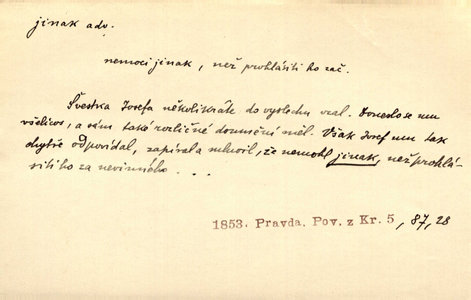 jinak adv.
nemoci jinak, než prohlásiti ho zač.
Švestka Josefa několikráte do výslechu vzal. Doneslo se mu
všelicos, a sám také rozličné domnění měl. Však Josef mu tak
chytře odpovídal, zapíral a mluvil, že nemohl jinak, než prohlá-
siti ho za nevinného. . .
1853. Pravda. Pov. z Kr. 5, 87, 28